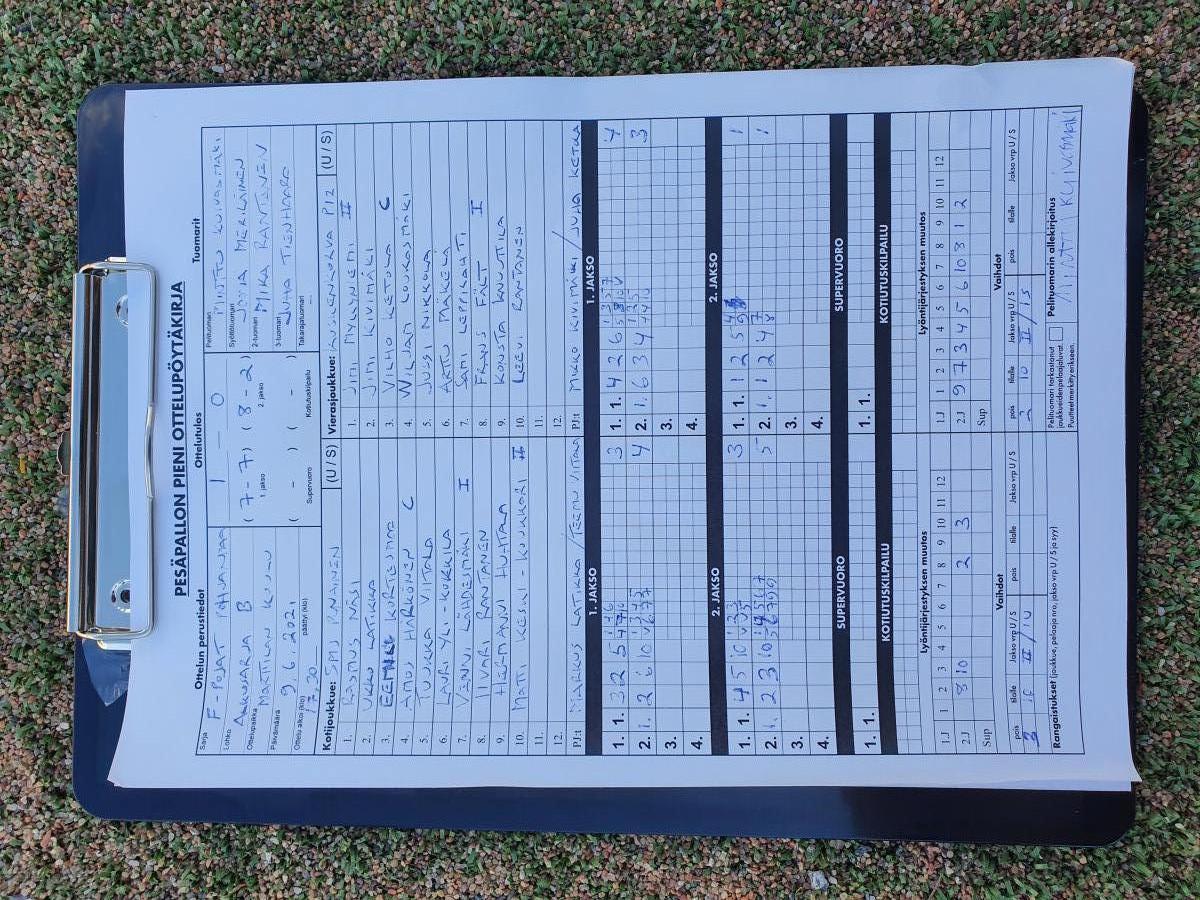 PESÄPALLON PIENI OTTELUPÖYTÄKIRJA
Ottelun perustiedot
Ottelutulos
Tuomarit
Sarja F-POJAT POHJANMAA
Lohko ALKUSARJA B
Ottelupaikka MARTTILAN KOULU
Päivämäärä 9.6.2021
Ottelu alkoi (klo) 17.30 päättyi (klo)
1 — 0
(7-7) (8-2)
1. jakso 2. jakso
( - ) ( - )
Supervuoro Kotiutuskilpailu
Pelituomari MINTTU KUIVASMÄKI
Syöttötuomari MERILÄINEN
2-tuomari MIKA RANTANEN
3-tuomari JUHA TIENHAARA
Takarajatuomari
Kotijoukkue: SMJ PUNAINEN (U / S)
1. RASMUS VÄSI
2. UKKO LATIKKA
3. EEMIL KORTESMAA
4. AMOS HARKÖNEN C
5. TUUKKA VIITALA
6. LAURI YLI-KOKKILA
7. VENNI LÄHDEMÄKI I
8. IIVARI RANTANEN
9. HERMANNI HUHTALA
10. MATTI KESKI-KUUKKARI II
11.
12.
PJ:t MARKUS LATIKKA / TEEMU VIITALA
Vierasjoukkue: P12 (U / S)
1. JIMI MYLLYNIEMI II
2. JIMI KIVIMÄKI
3. VILHO KETOLA C
4. WILJAMI LUOKASMÄKI
5. JUSSI NIKKOLA
6. ARTTU MÄKELÄ
7. SAMI LEPPILAHTI
8. FRANS FÄLT I
9. KONSTA KNUUTTILA
10. LEEVI RANTANEN
11.
12.
PJ:t MIKKO KIVIMÄKI / JUHA KETOLA
1. JAKSO
1. JAKSO
1. 1. 3 2 5 3
2. 1. 2 6 4
3.
4.
1. 1. 4 2 6 4
2. 1. 6 3 4 3
3.
4.
2. JAKSO
2. JAKSO
1. 1. 4 5 10 3
2. 1. 2 3 10 5
3.
4.
1. 1. 1 2 5 1
2. 1. 1 2 4 1
3.
4.
SUPERVUORO
SUPERVUORO
1. 1.
1. 1.
KOTIUTUSKILPAILU
KOTIUTUSKILPAILU
Lyöntijärjestyksen muutos
1 2 3 4 5 6 7 8 9 10 11 12
1.J
2.J 8 10 2 3
Sup
Lyöntijärjestyksen muutos
1 2 3 4 5 6 7 8 9 10 11 12
1.J
2.J 9 7 3 4 5 6 10 8 1 2
Sup
Vaihdot
pois tilalle Jakso vrp U / S pois tilalle Jakso vrp U / S
3 II/IU
Vaihdot
pois tilalle Jakso vrp U / S pois tilalle Jakso vrp U / S
2 10 II/1S
Rangaistukset (joukkue, pelaaja nro, jakso vrp U / S ja syy)
Pelituomari tarkastanut joukkueidenpelaajaluvat. Puutteet merkitty erikseen.
Pelituomarin allekirjoitus